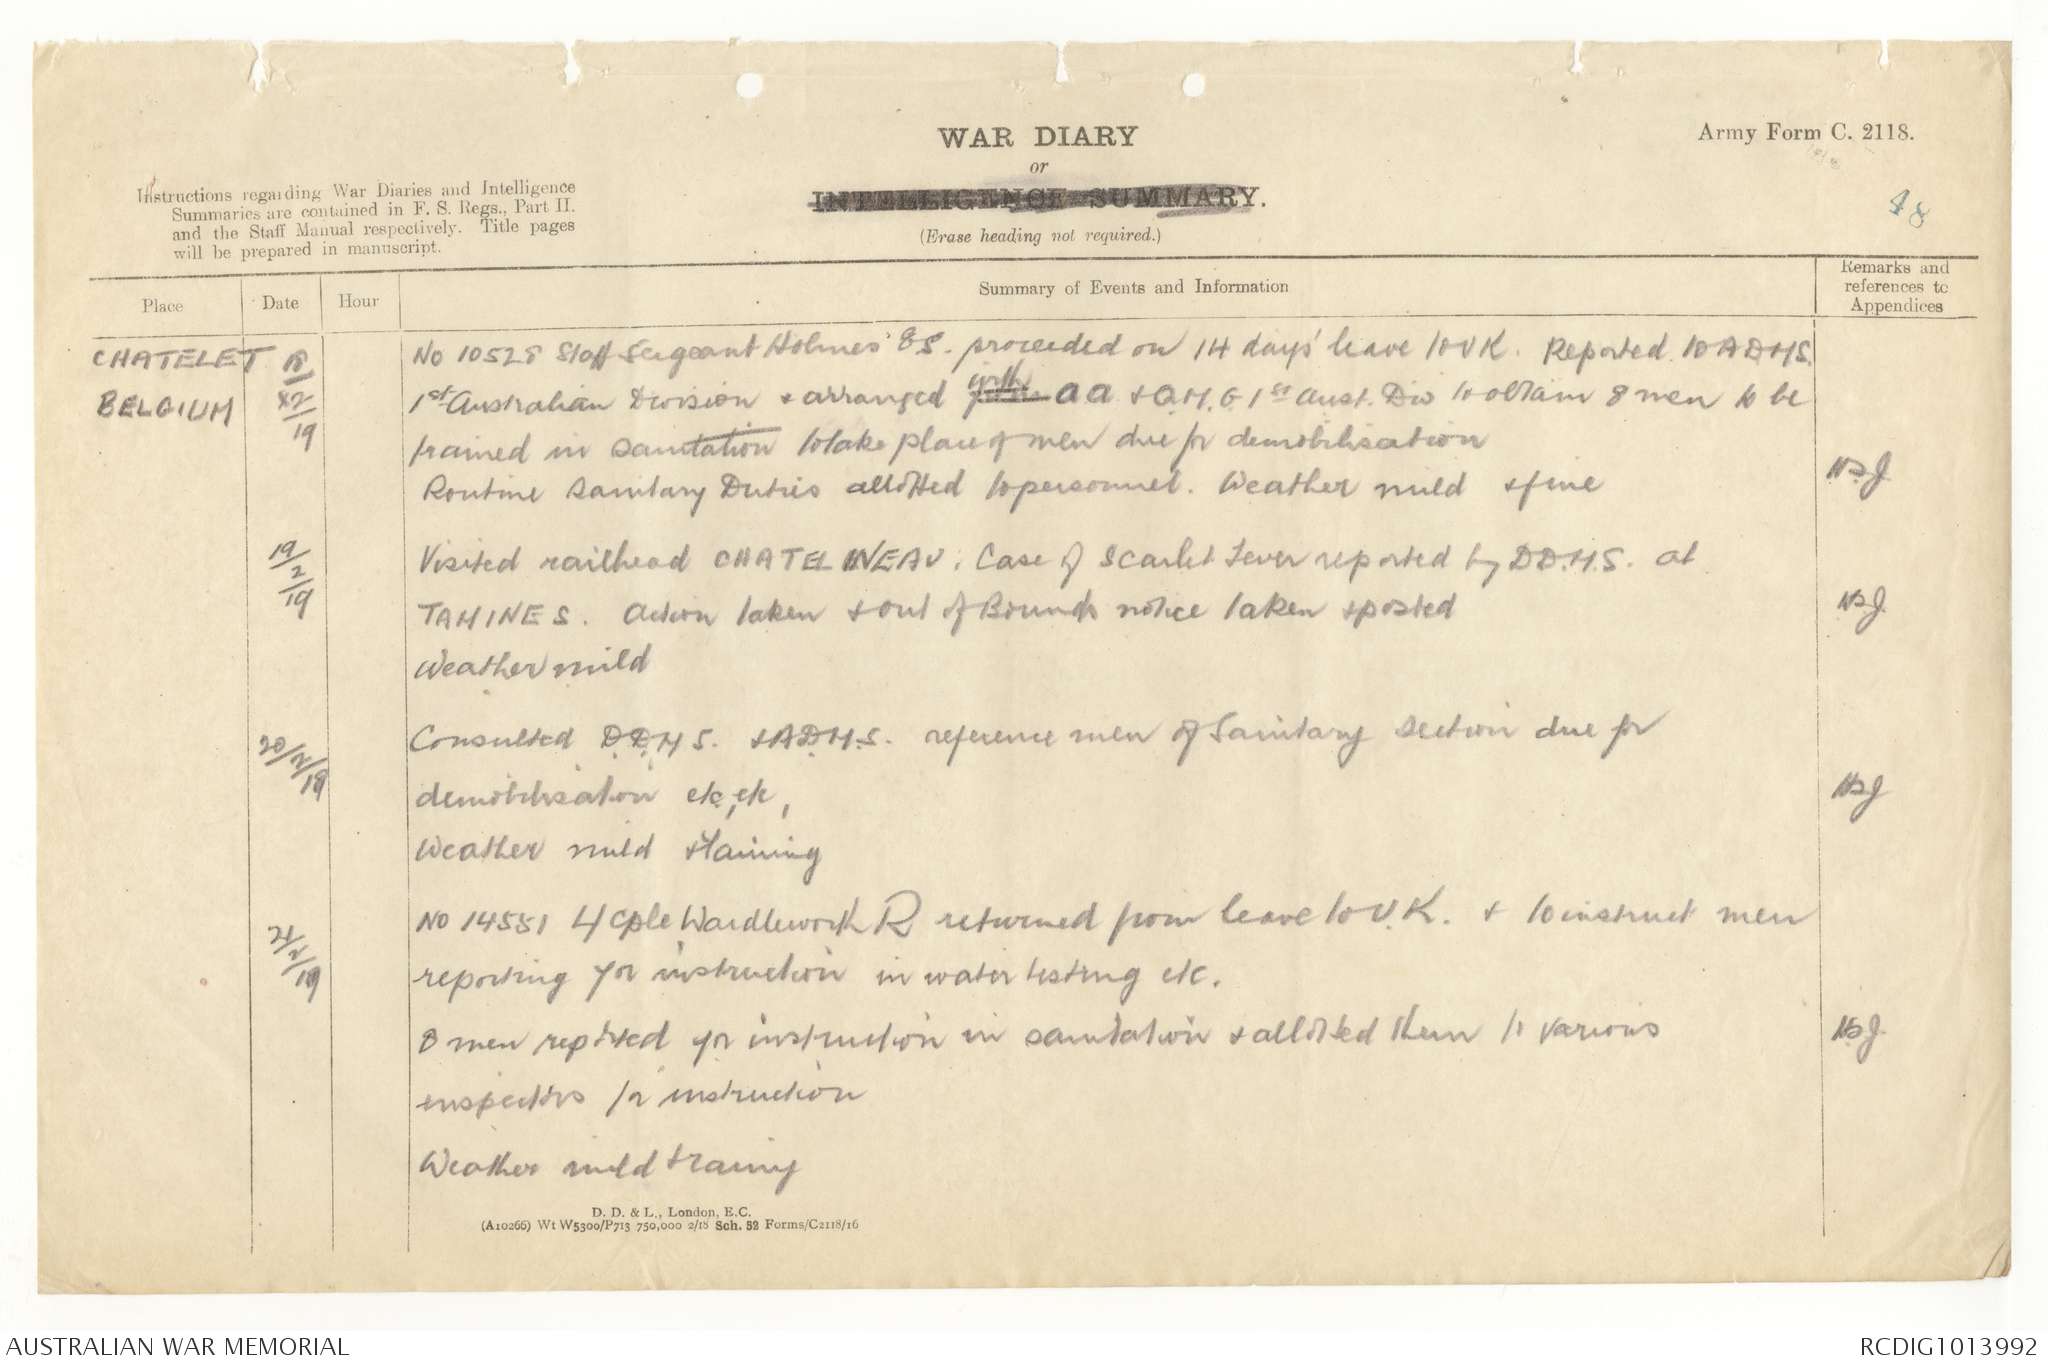 WAR DIARY
or
INTELLIGENCE SUMMARY.
(Erase heading not required.)
Army Form C. 2118.
48
Instructions regarding War Diaries and Intelligence
Summaries are contained in F. S. Regs., Part II.
and the Staff Manual respectively. Title pages
will be prepared in manuscript.
Place Date Hour Summary of Events and Information Remarks and references to Appendices
CHATELET 18/2/19 No 10528 Staff Sergeant Holmes proceeded on 14 days' leave to U K. Reported to ADMS.
BELGIUM 1st Australian Division & arranged with AA & Q.M.G 1st Aust. Div to obtain 8 men to be
trained in sanitation to take place of men due for demobilisation
Routine Sanitary Duties allotted to personnel. Weather mild & fine
19/2/19 Visited railhead CHATELINEAU. Case of Scarlet Fever reported by DD.M.S. at
TAMINES. Action taken & out of Bounds notice taken & posted
Weather mild
20/2/19 Consulted D.D.M.S. & A.D.M.S. reference men of Sanitary Section due for
demobilisation etc, etc,
Weather mild & raining
21/2/19 No 14551 L/Cple Wardlework R returned from leave to U.K. & to instruct men
reporting for instruction in water testing etc.
8 men reported for instruction in sanitation & allotted them to various
inspectors for instruction
Weather mild & rainy
D. D. & L., London, E.C.
(A10266) Wt W5300/P713 750,000 2/18 Sch. 52 Forms/C2118/16
AUSTRALIAN WAR MEMORIAL
RCDIG1013992